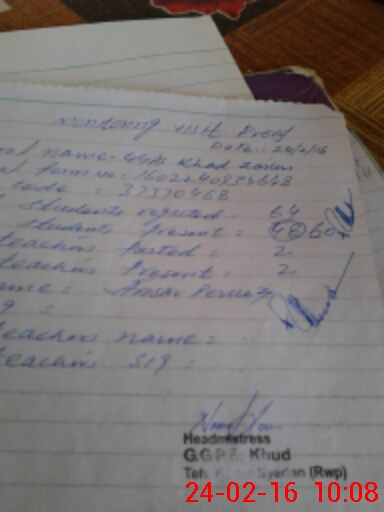 Monitoring visit Proof
Date: 24/2/16
name: Khud
form no: 1602240934648
code : 37370468
Students registed : 64
Students Present : 48 60
teachers Posted : 2
teachers Present : 2
me : Ansar Pervez
g :
teachers name :
teachers sig :
Headmistress
G.G.P.S. Khud
Teh. Syedan (Rwp)
24-02-16 10:08